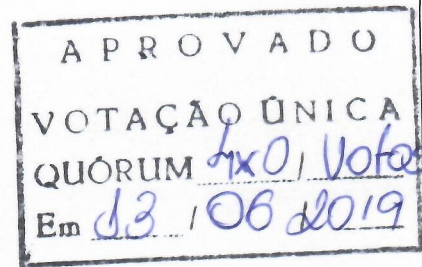 APROVADO
VOTAÇÃO ÚNICA
QUÓRUM 4x0, Votos
Em 13 / 06 / 2019